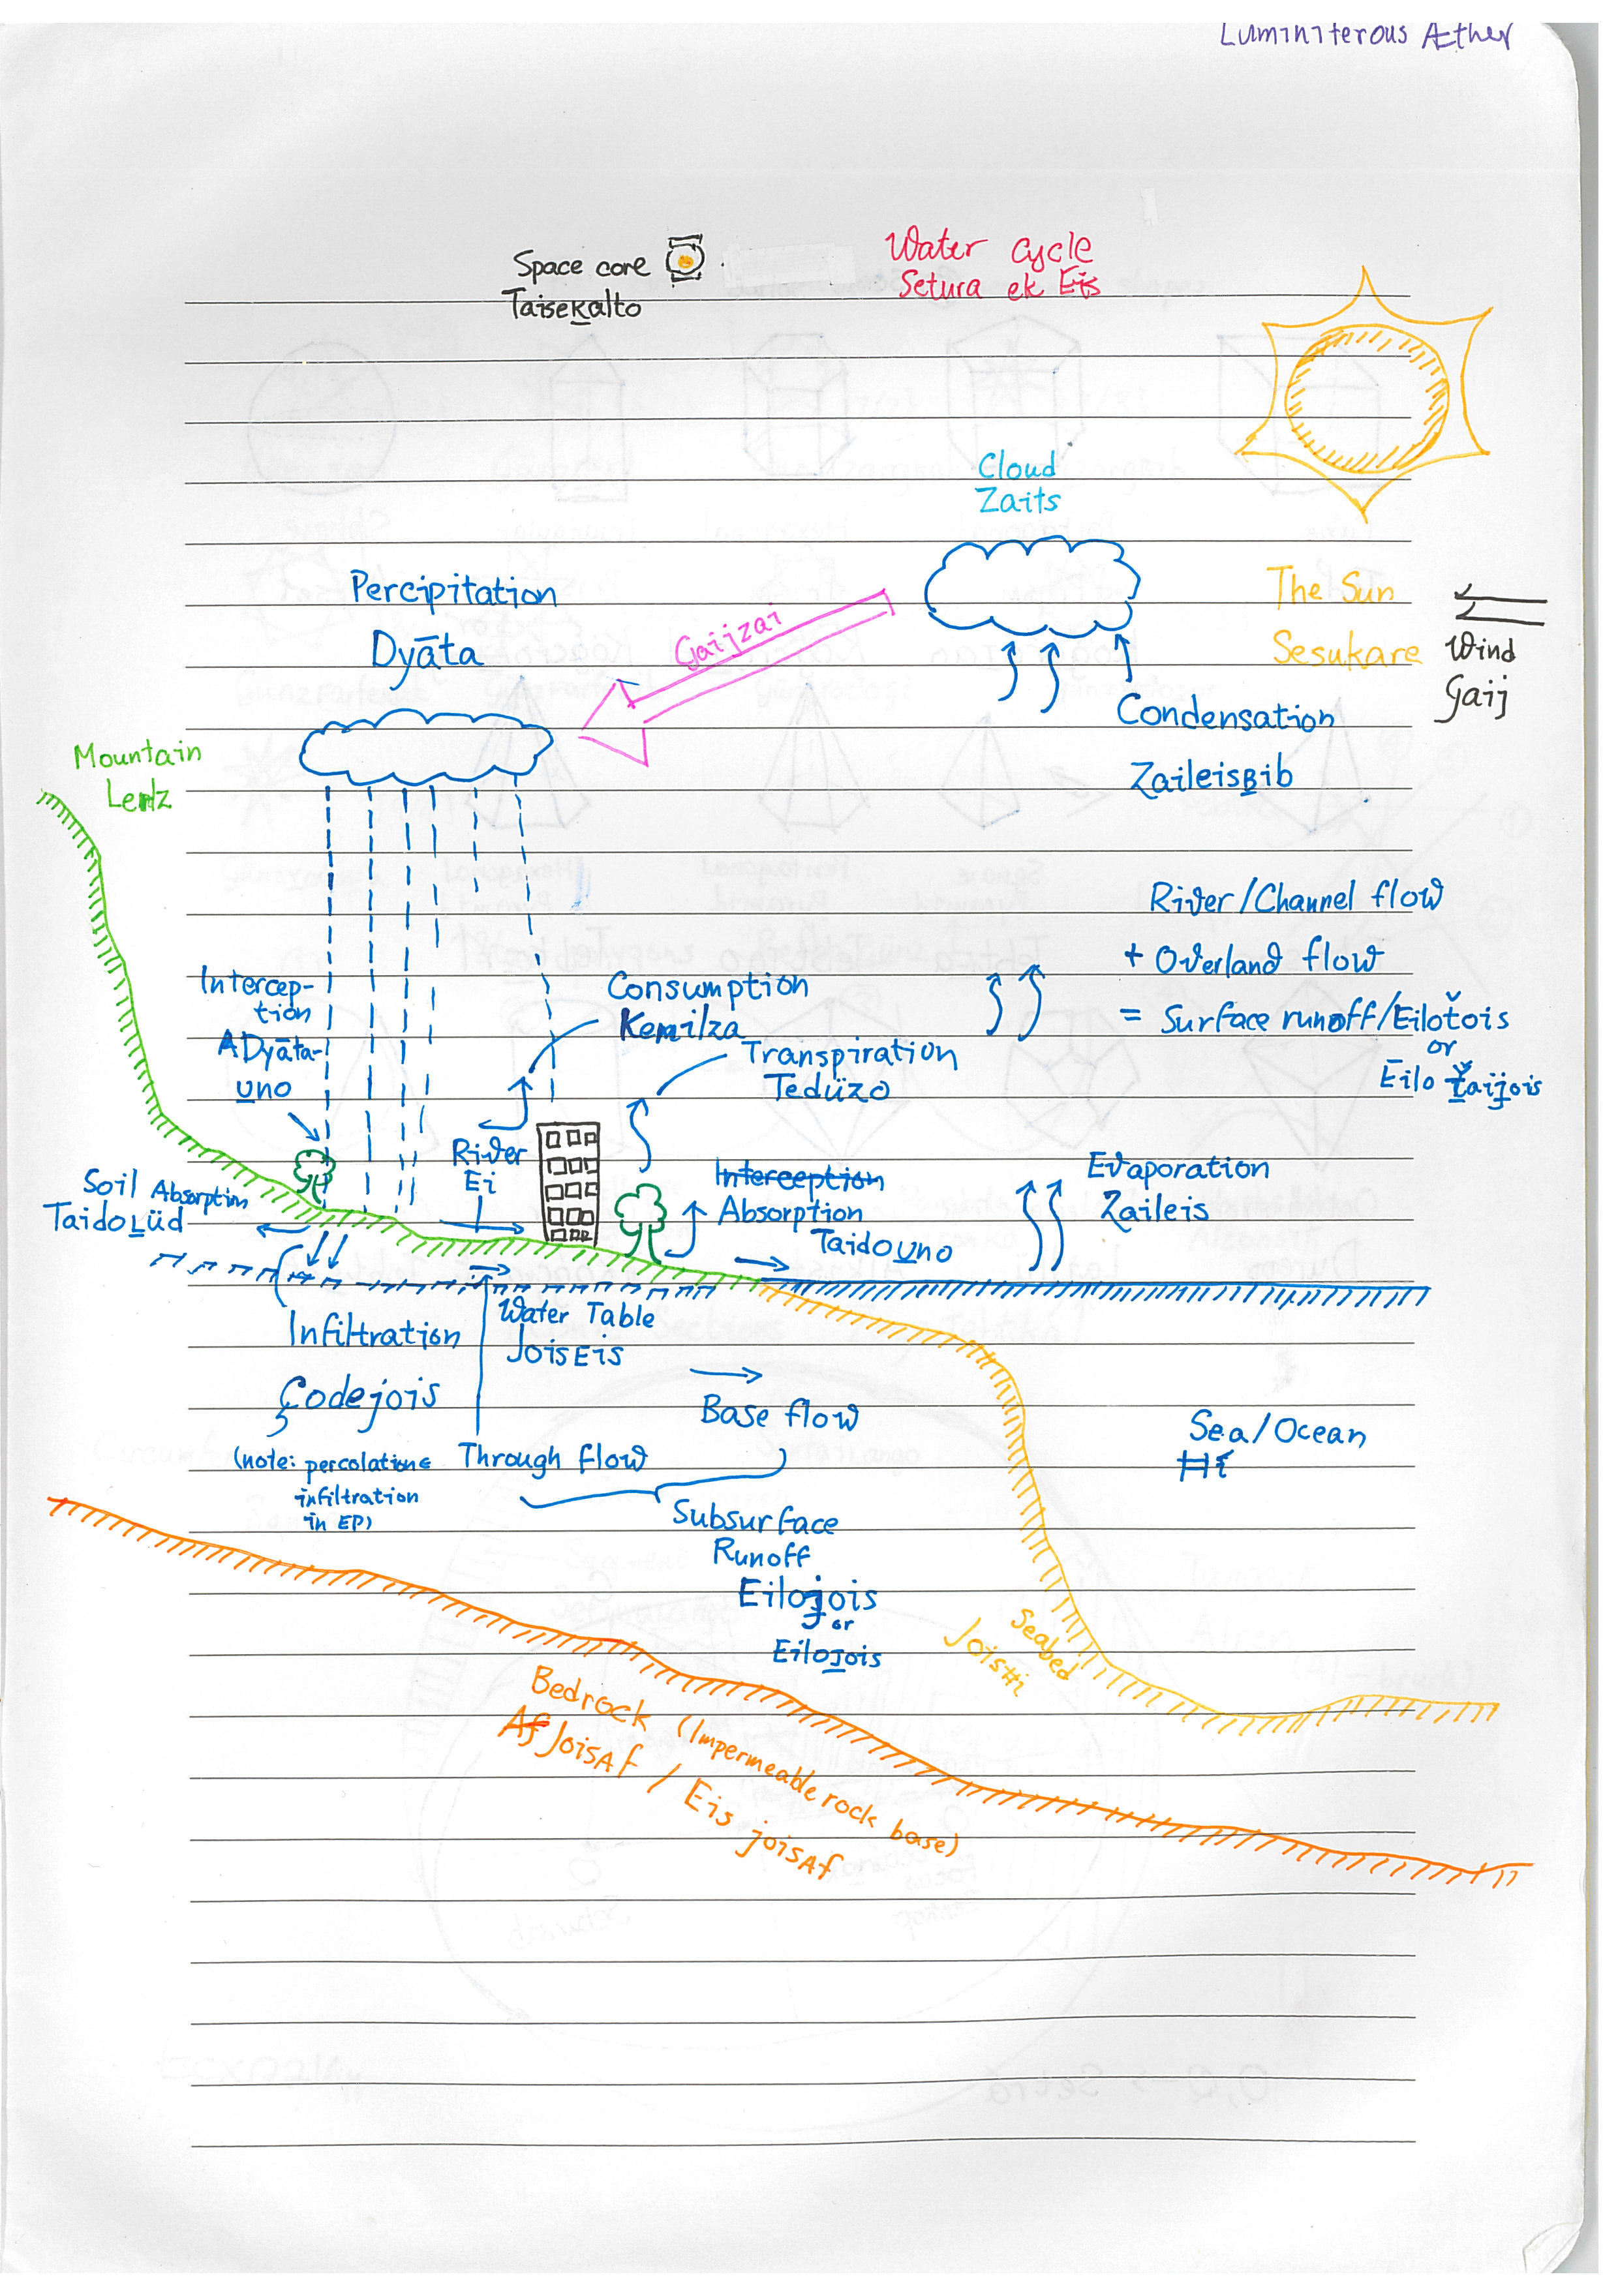 Luminiferous Æther
Space core
Taisekalto
Water cycle
Setura ek Eis
Cloud
Zaits
The Sun
Sesukare
Wind
Gaij
Percipitation
Dyāta
Gaijzai
Condensation
ZaileisBib
Mountain
Lenz
River/Channel flow
+ Overland flow
= Surface runoff/Eilotois
or
Intercep-
tion
ADyāta-
uno
Consumption
Kemilza
Transpiration
Tedüzo
River
Ei
Soil Absorption
TaidoLüd
Interception
Absorption
Taidouno
Evaporation
Zaileis
Infiltration
Çodejois
(note: percolation ∈
infiltration
in EP)
Water Table
JoisEis
Through flow
Base flow
Subsurface
Runoff
Eilojois
or
EiloJois
Sea/Ocean
Seabed
Bedrock (Impermeable rock base)
Af JoisAf / Eis joisAf